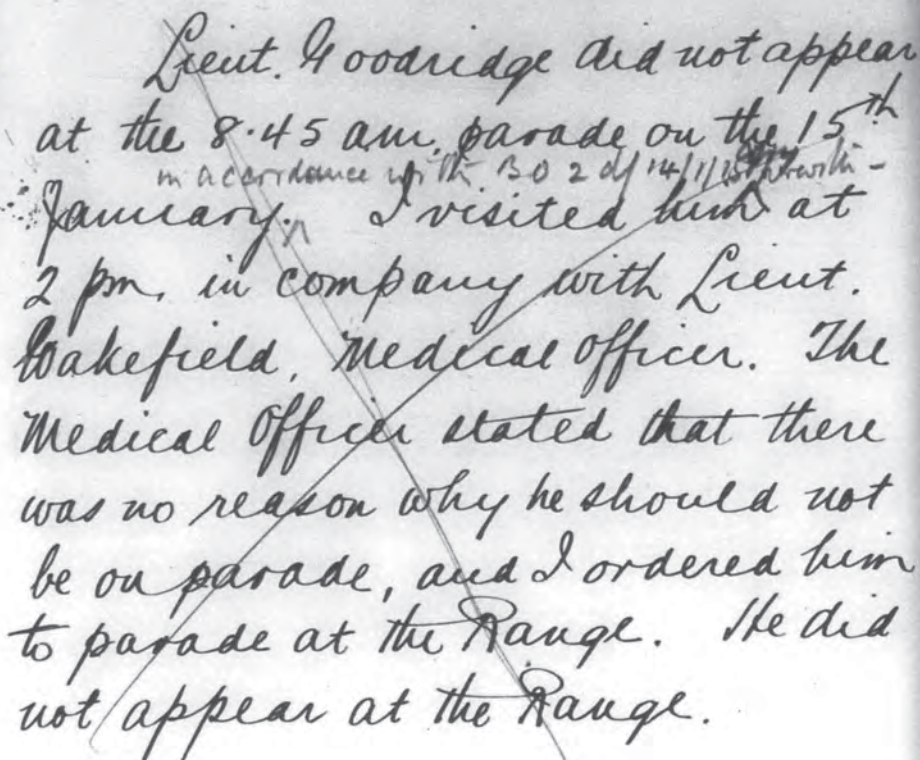 Lieut. Goodridge did not appear
at the 8.45 am. parade on the 15th
in accordance with BO 2 of 14/1/15 herewith -
January. I visited him at
2 pm. in company with Lieut.
Wakefield, Medical Officer. The
Medical Officer stated that there
was no reason why he should not
be on parade, and I ordered him
to parade at the Range. He did
not appear at the Range.